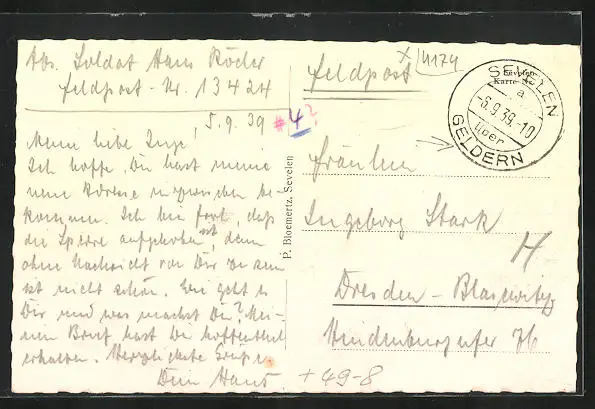 Abs. Soldat Hans Röder
Feldpost-Nr. 13424
5.9.39
#4?
Meine liebe Inge
Ich hoffe, Du hast meine
neue Adresse inzwischen be-
kommen. Ich bin froh, daß
die Sperre aufgehoben ist, denn
ohne Nachricht von Dir zu sein
ist nicht schön. Wie geht es
Dir und was machst Du? Mei-
nen Brief hast Du hoffentlich
erhalten. Herzlichste Grüße
Dein Hans
P. Bloemertz, Sevelen
Feldpost
4174
SEVELEN
Sevelen
Karte Nr.
a
-6.9.39.-10
über
GELDERN
Fräulein
Ingeborg Stark
H
Dresden-Blasewitz
Hindenburgufer 76
+49-8